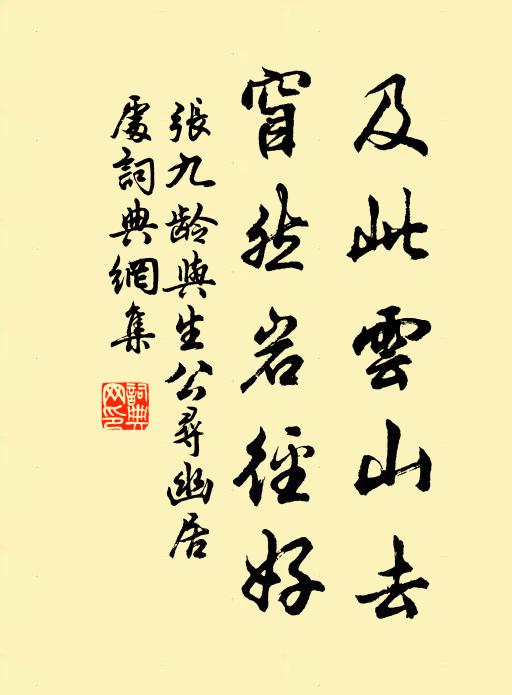 及此雲山去
窅然岩徑好
張九龄與生公尋幽居
處詞典網集
詞典網印